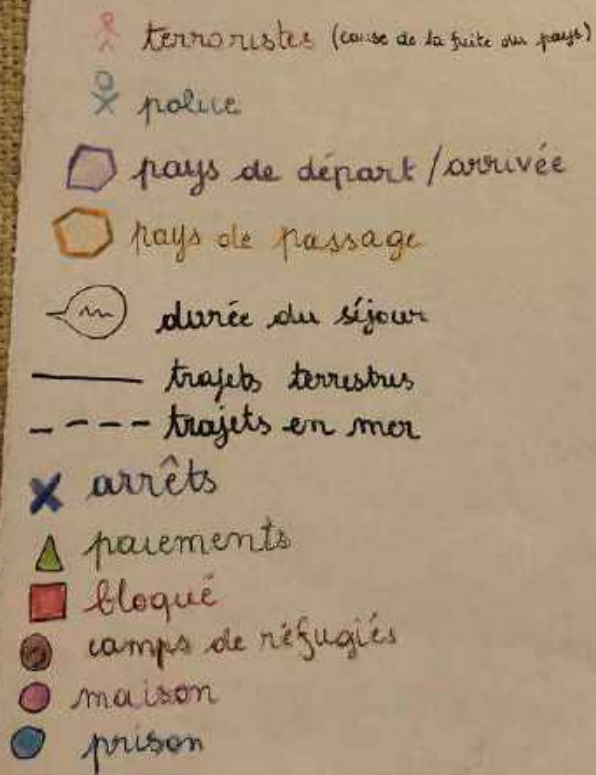 terroristes (cause de la fuite du pays)
police
pays de départ/arrivée
pays de passage
durée du séjour
trajets terrestres
trajets en mer
arrêts
paiements
bloqué
camps de réfugiés
maison
prison